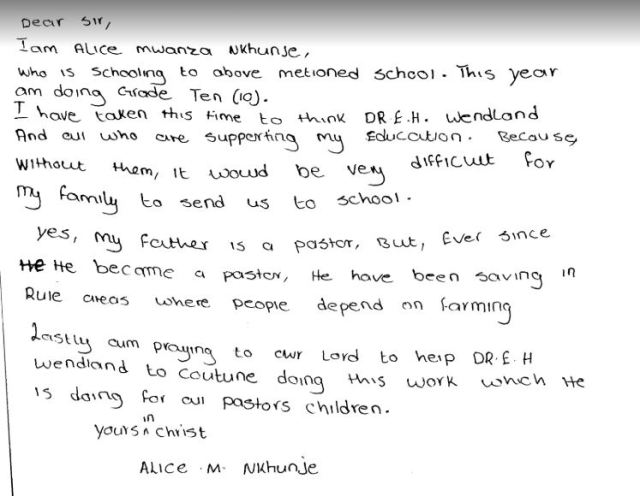 Dear Sir,
I am ALICE mwanza NKhunje,
who is Schooling to above metioned school. This year
am doing Grade Ten (10).
I have taken this time to think DR E.H. Wendland
And all who are supporting my Education. Because,
Without them, it would be very difficult for
my family to send us to school.
yes, my father is a pastor, But, Ever since
He He became a pastor, He have been saving in
Rule areas where people depend on farming
Lastly am praying to our Lord to help DR. E. H
Wendland to coutune doing this work which He
is doing for all pastors children.
yours in christ
ALICE M. NKhunje